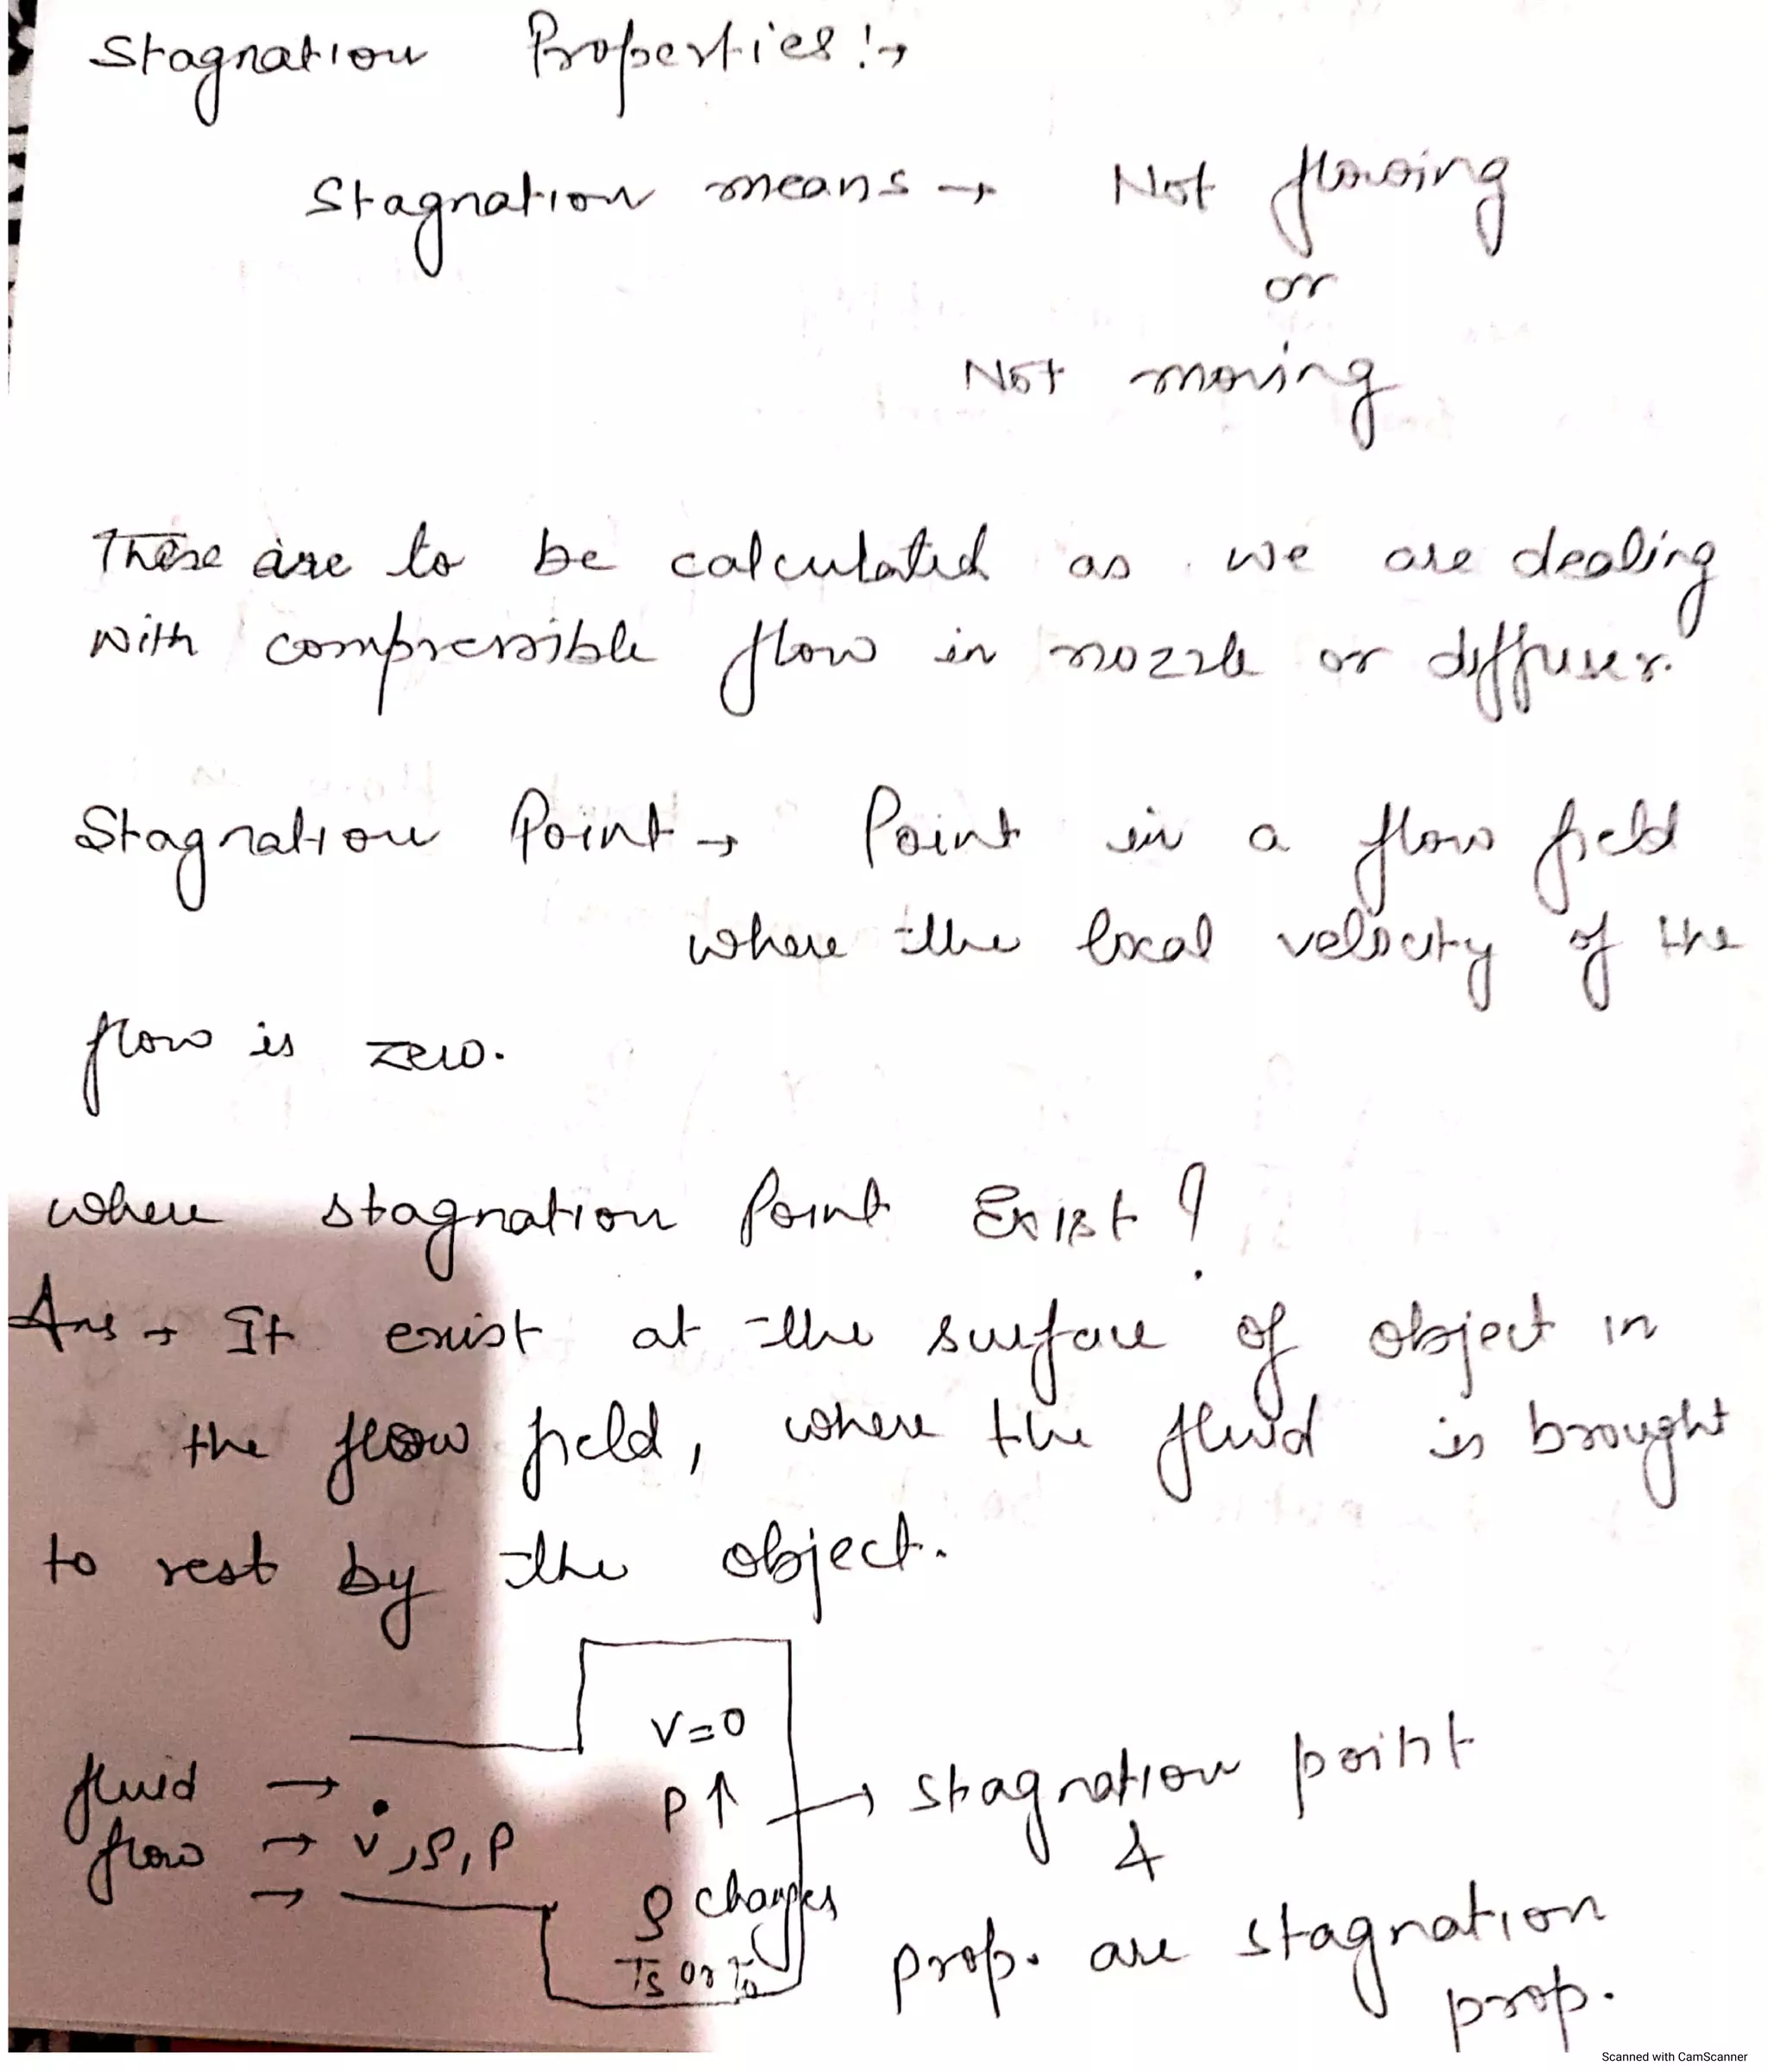 Stagnation Properties :→
Stagnation means → Not flowing
or
Not moving
These are to be calculated as we are dealing
with compressible flow in nozzle or diffuser.
Stagnation Point → Point in a flow field
where the local velocity of the
flow is zero.
where stagnation Point Exist ?
Ans → It exist at the surface of object in
the flow field, where the fluid is brought
to rest by the object.
V=0
fluid → P↑ → stagnation point
flow → v, ρ, P &
→ ρ changes prop. are stagnation
Ts or To prop.
Scanned with CamScanner